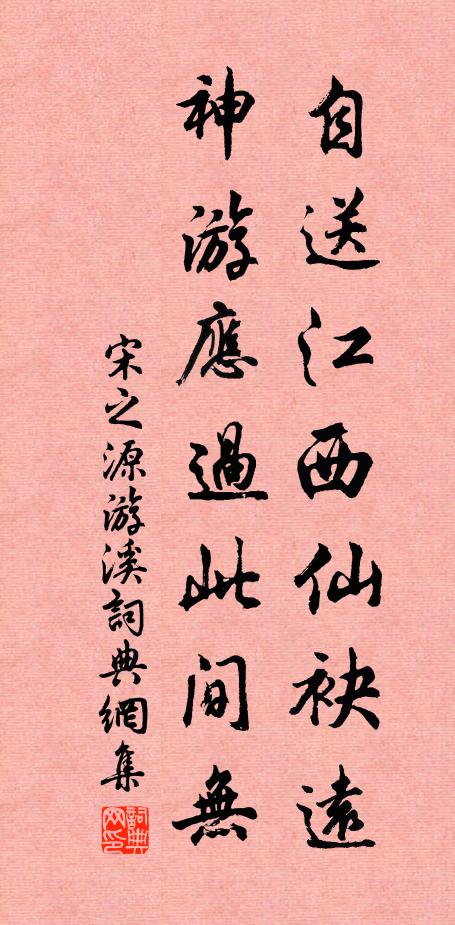 自送江西仙袂遠
神游應過此間無
宋之源游溪詞典網集
詞典網印